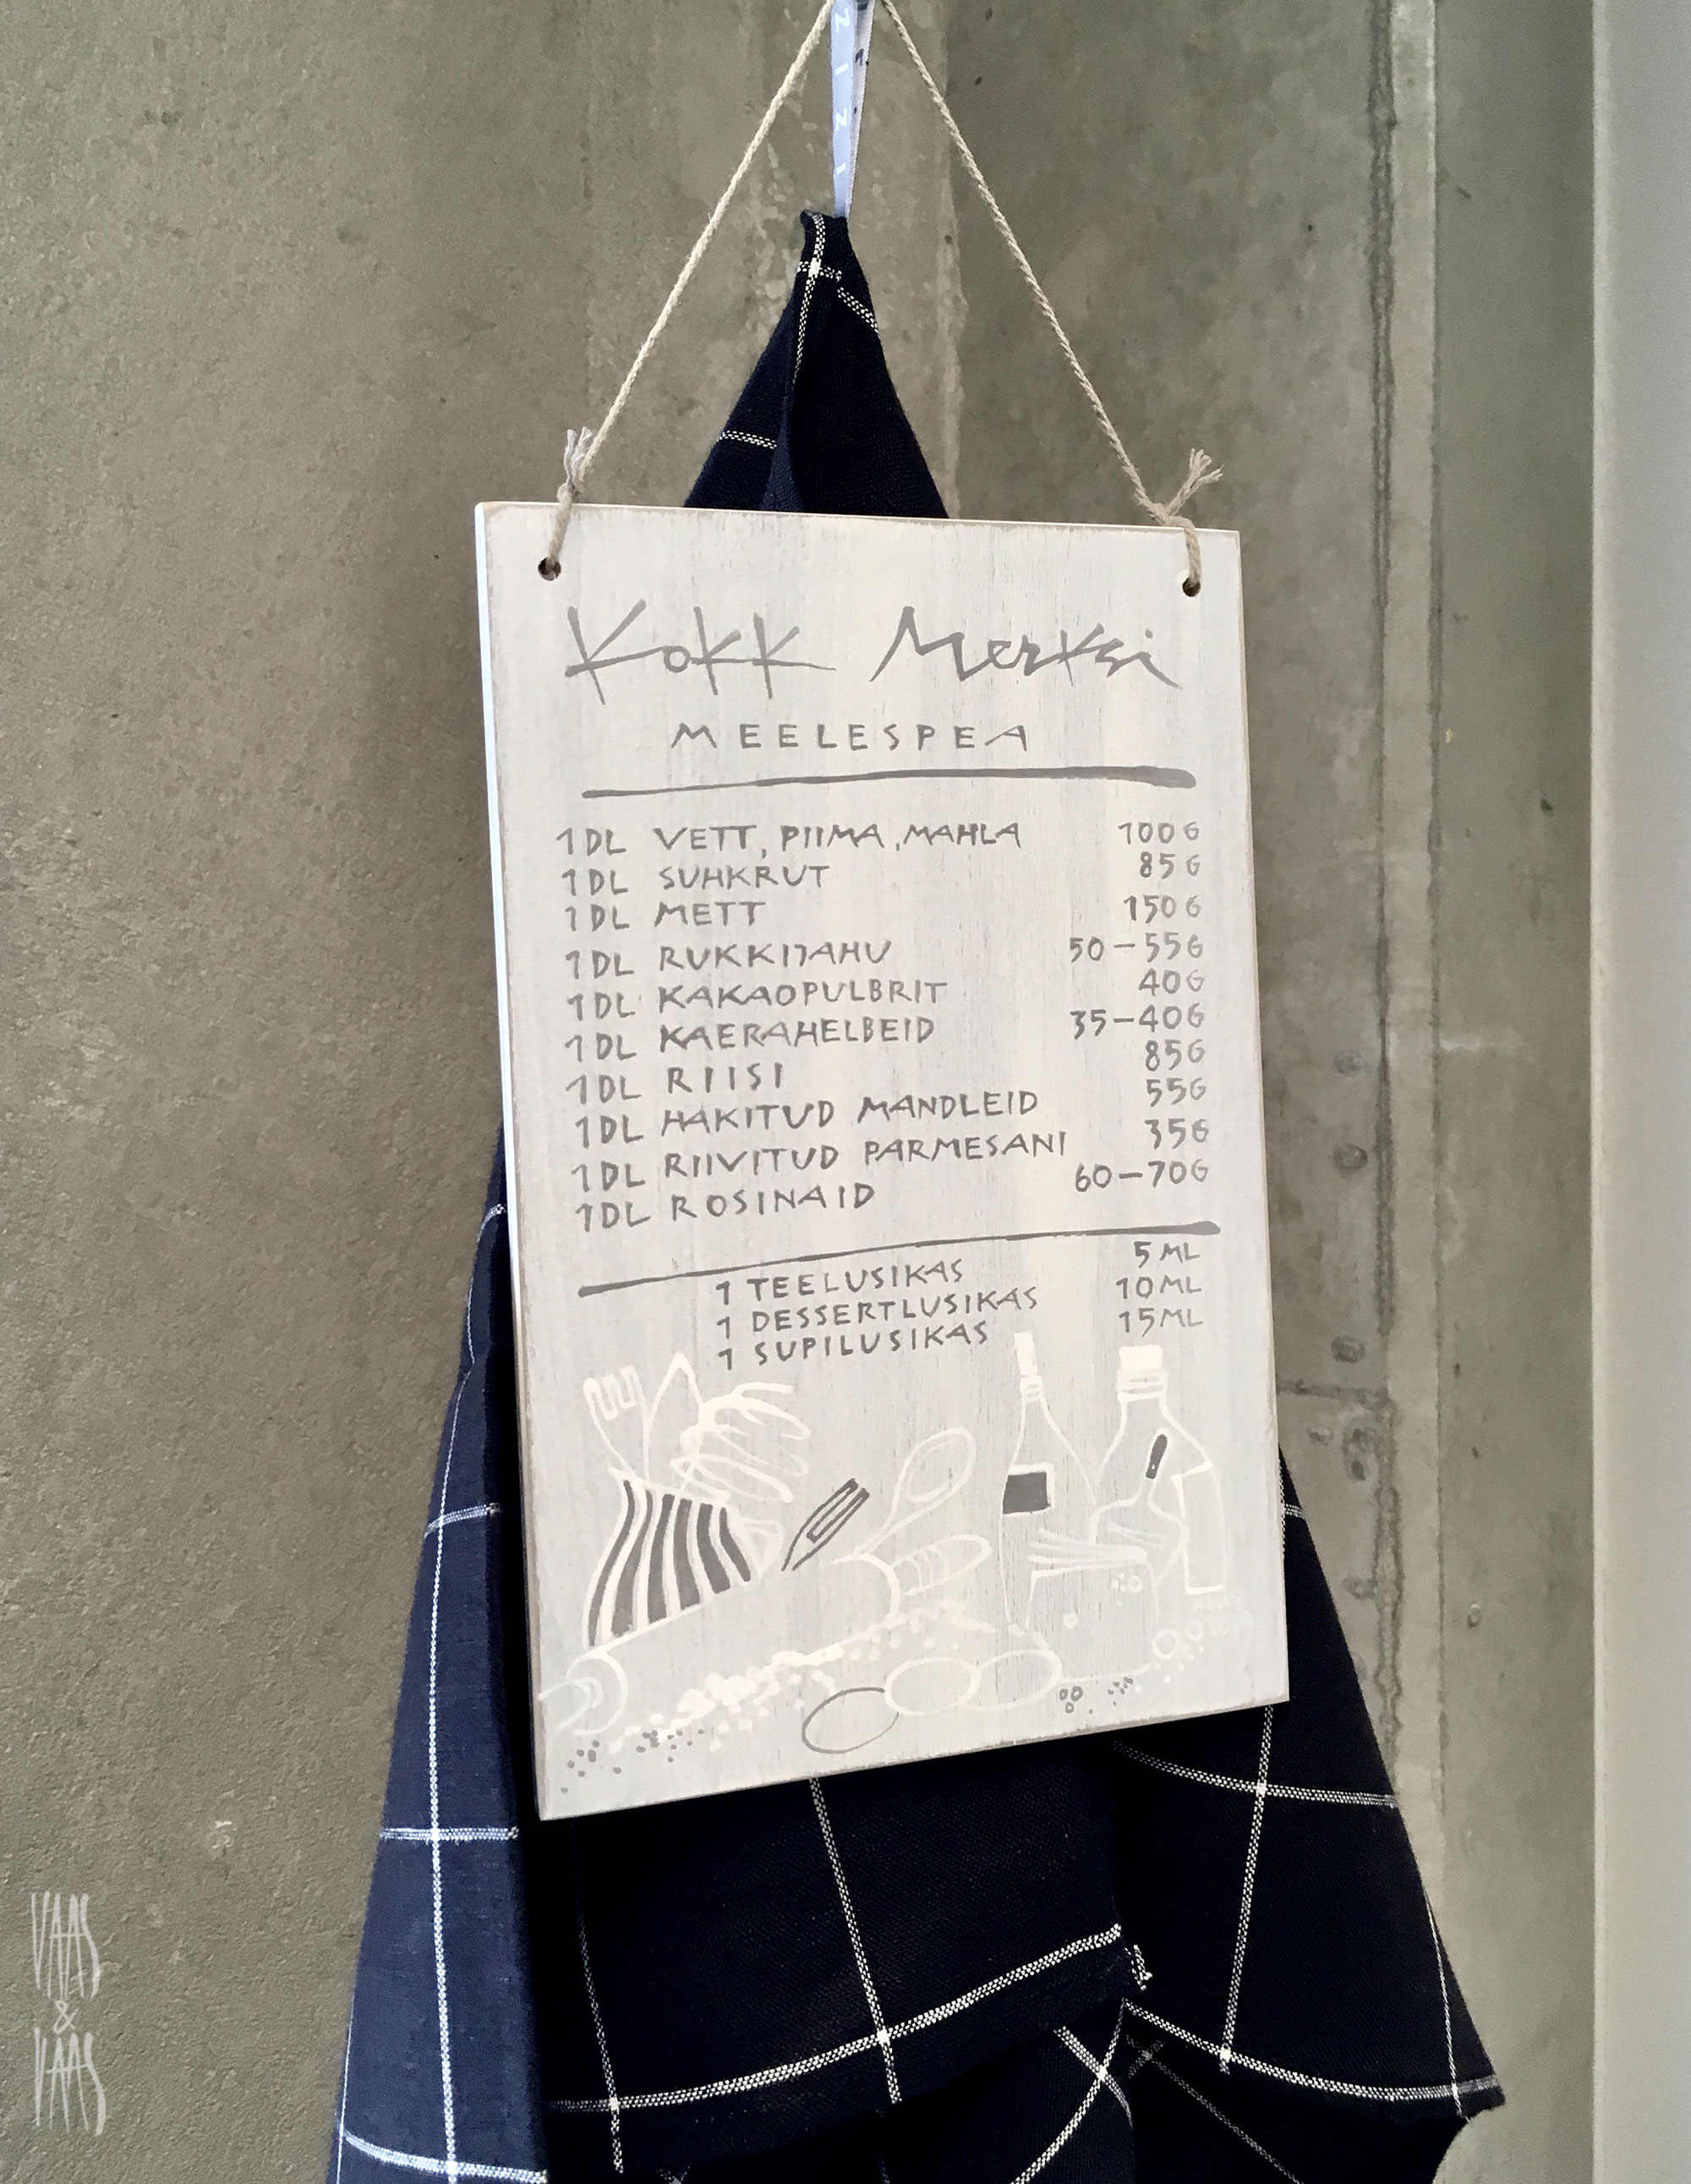 Kokk Merksi
MEELESPEA
1DL VETT, PIIMA, MAHLA 100G
1DL SUHKRUT 85G
1DL METT 150G
1DL RUKKIJAHU 50–55G
1DL KAKAOPULBRIT 40G
1DL KAERAHELBEID 35–40G
1DL RIISI 85G
1DL HAKITUD MANDLEID 55G
1DL RIIVITUD PARMESANI 35G
1DL ROSINAID 60–70G
1 TEELUSIKAS 5ML
1 DESSERTLUSIKAS 10ML
1 SUPILUSIKAS 15ML
VAAS
&
VAAS